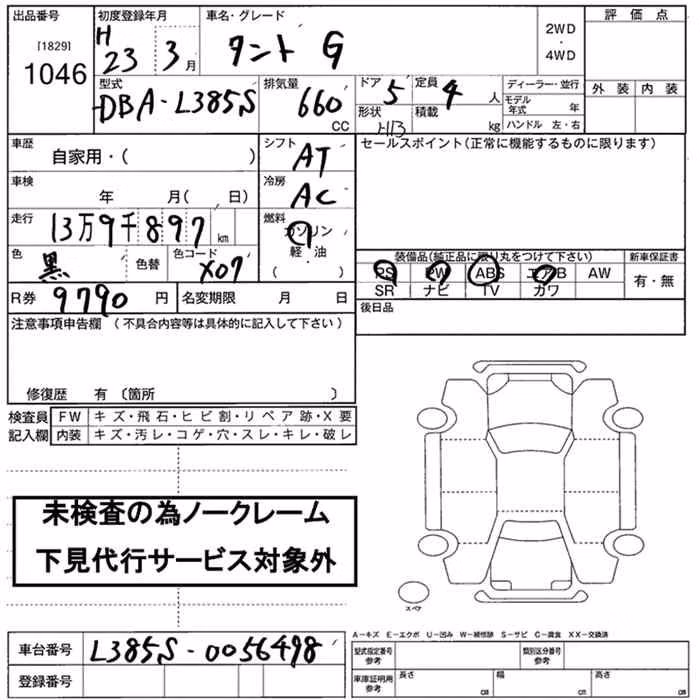 出品番号 初度登録年月 車名・グレード 評価点
[1829] H 2WD
1046 23 3月 タント G ・
4WD
型式 排気量 ドア 定員 ディーラー・並行 外装 内装
DBA-L385S 660 5 4 人 モデル年式 年
CC 形状 積載 kg ハンドル 左・右
車歴 シフト セールスポイント(正常に機能するものに限ります)
自家用・( ) AT
車検 冷房
年 月( 日) AC
走行 燃料
13万9千897 km ガソリン
軽・油
・
( )
色 色替 色コード
黒 X07
装備品(純正品に限り丸をつけて下さい) 新車保証書
PS PW ABS エアB AW 有・無
SR ナビ TV カワ
R券 9790 円 名変期限 月 日 後日品
注意事項申告欄 (不具合内容等は具体的に記入して下さい)
修復歴 有 (箇所 )
検査員 FW キズ・飛石・ヒビ割・リペア跡・X要
記入欄 内装 キズ・汚レ・コゲ・穴・スレ・キレ・破レ
未検査の為ノークレーム
下見代行サービス対象外
スペア
A-キズ E-エクボ U-凹み W-補修跡 S-サビ C-腐食 XX-交換済
車台番号 L385S-0056498 型式指定番号 参考 類別区分番号 参考
登録番号 車庫証明用 参考 長さ cm 幅 cm 高さ cm